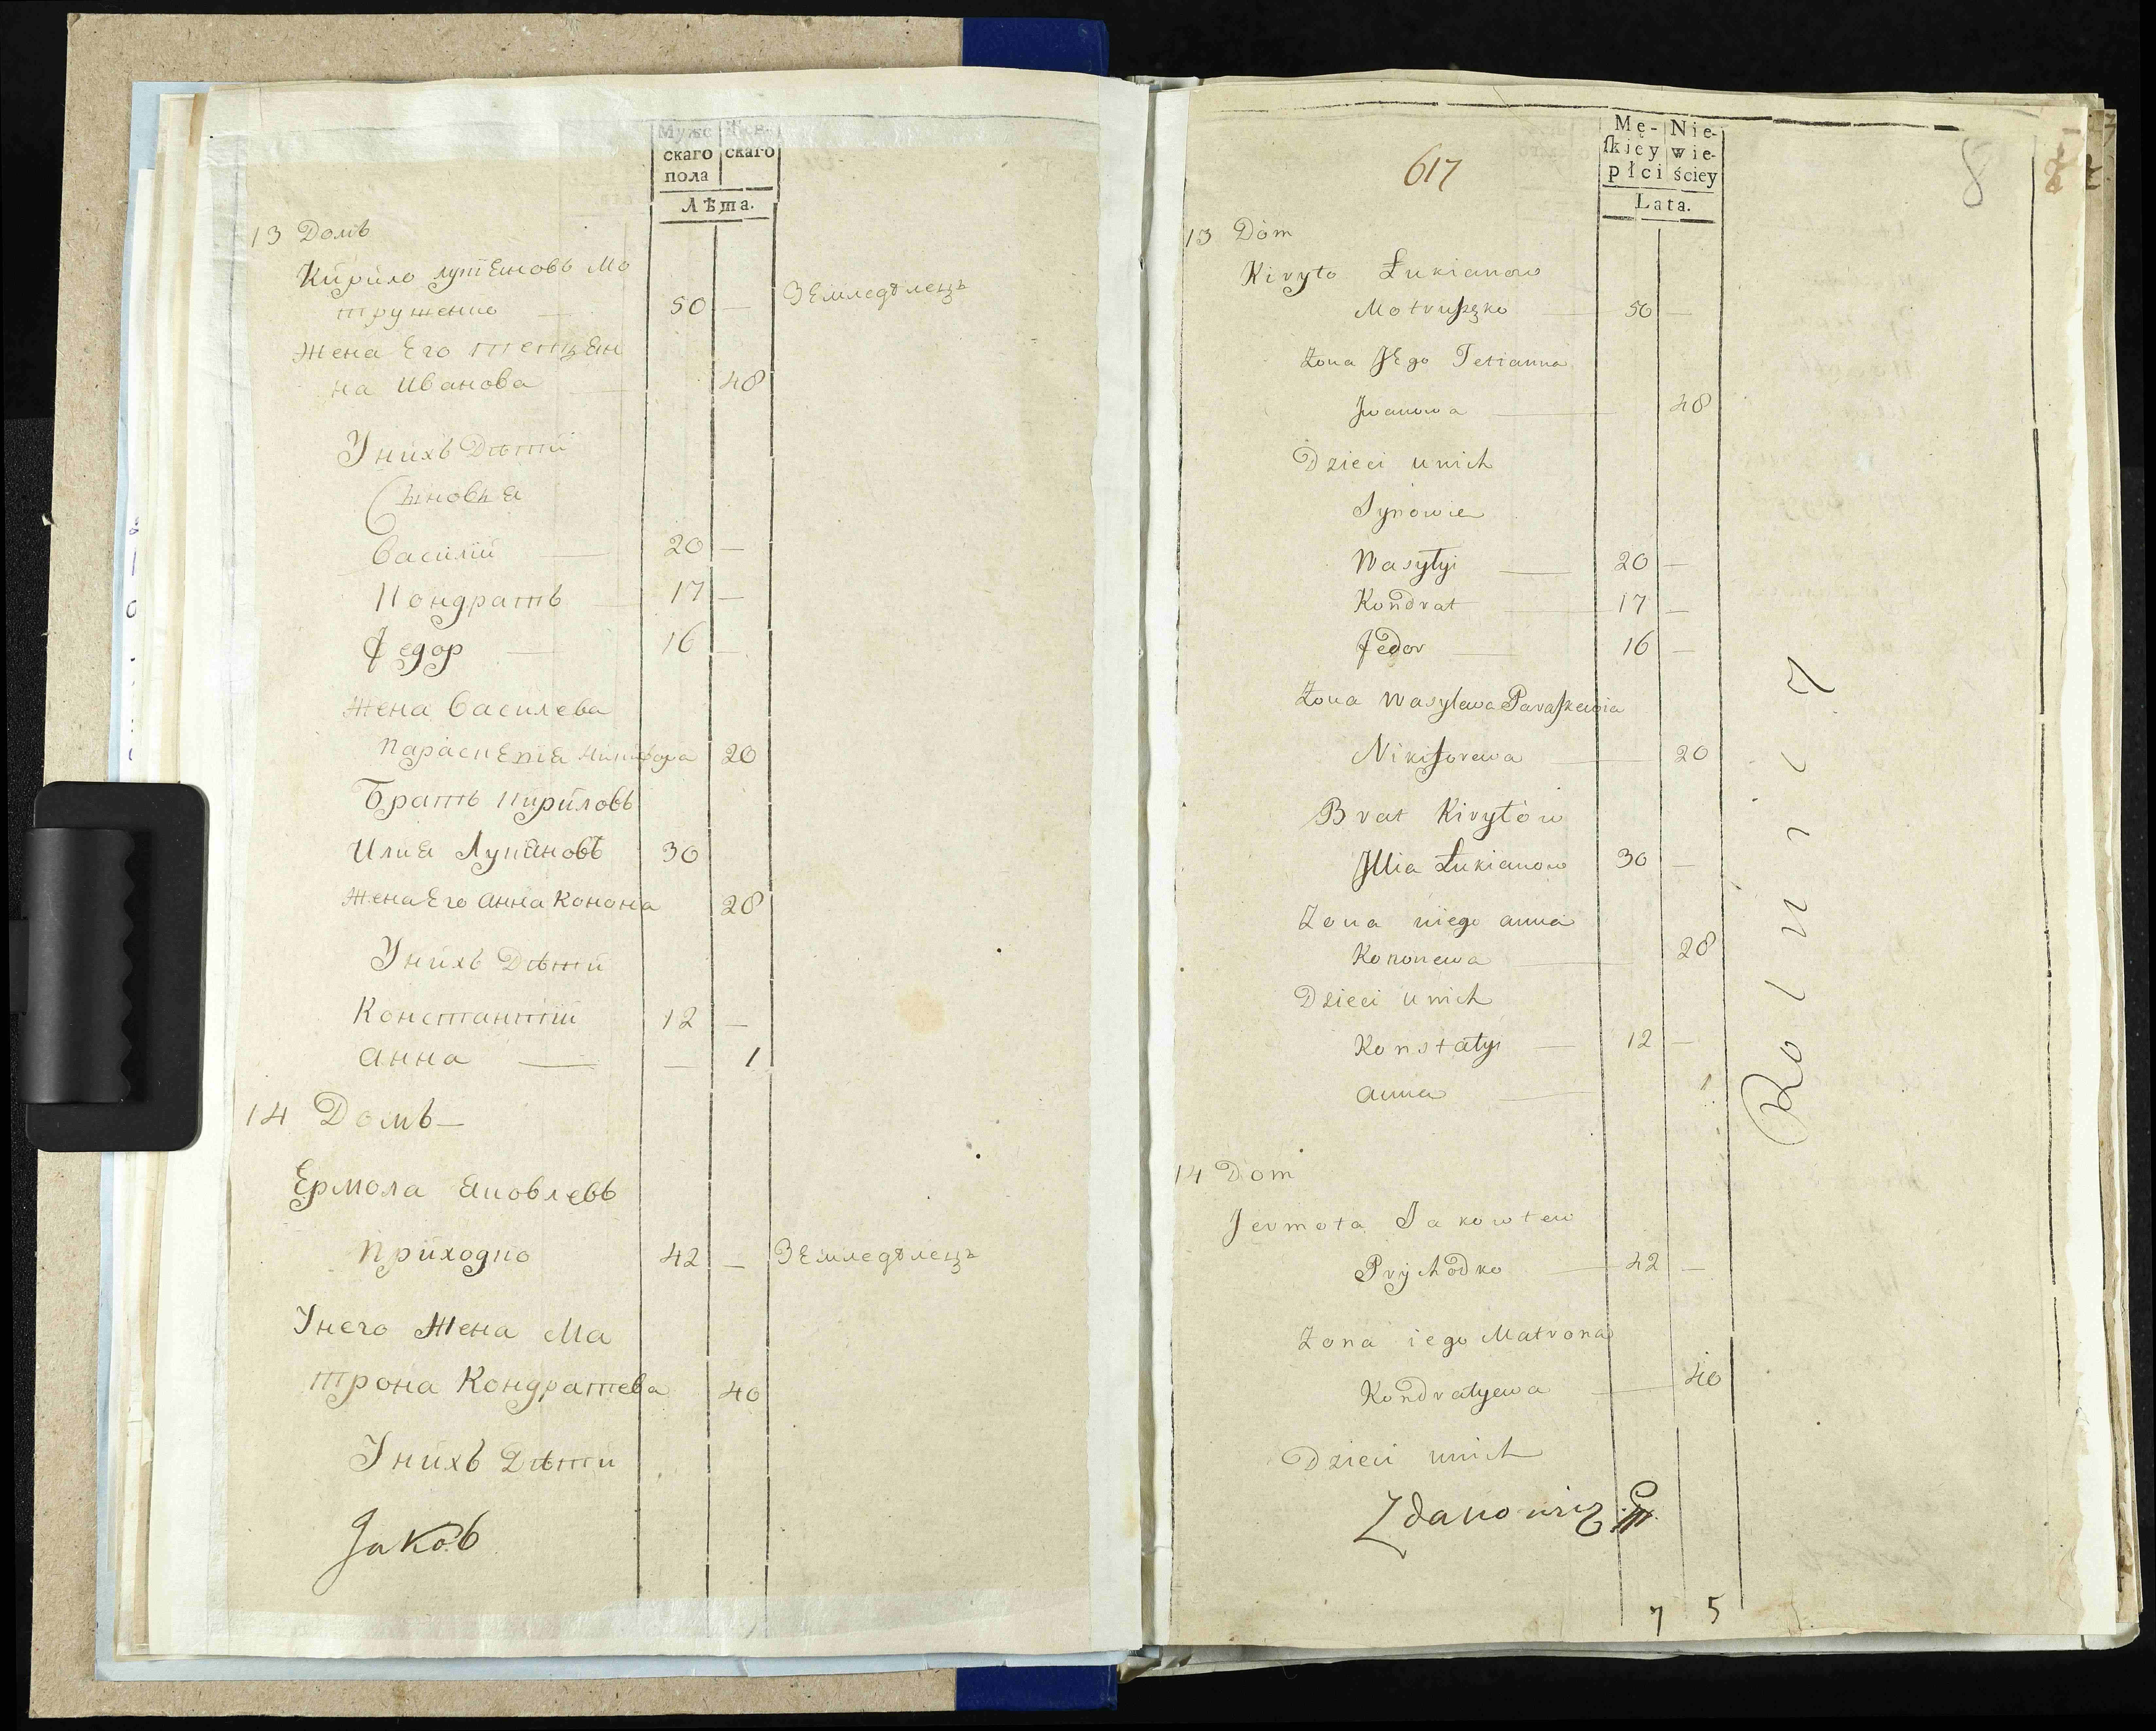 Мужс Жен-
скаго скаго
пола
Лѣта.
13 Домъ
Кирило Лукѣановъ Мо
трушенко 50 — Землѣделецъ
Жена Его Тетѣян
на Иванова 48
У нихъ Дѣти
Сыновья
Василий 20 —
Кондратъ 17 —
Федор 16 —
Жена Василева
Параскѣвиа Никифора 20
Братъ Кириловъ
Илиа Лукяновъ 30
Жена Его Анна Конона 28
У нихъ Дѣти
Константий 12 —
Анна — — 1
14 Домъ —
Ермола Яковлевъ
Приходко 42 — Землѣделецъ
У него Жена Ма
трона Кондратева 40
У нихъ Дѣти
Jakob
617
8
Mę- Nie-
ſkiey wie-
płci ściey
Lata.
13 Dom
Kiryło Łukianow
Motruszko 50 —
Żona JEgo Tetianna
Jwanowa 48
Dzieci unich
Synowie
Wasyłyi 20 —
Kondrat 17 —
Fedor 16 —
Żona Wasylewa Paraſkewia
Nikiforewa 20
Brat Kiryłów
Jllia Łukianow 30 —
Żona niego anna
Kononewa 28
Dzieci unich
Konstatyi 12 —
anna 1
14 Dom
Jermoła Jakowlew
Prychodko 42 —
Żona iego Matrona
Kondratyewa 40
Dzieci unich
Zdanowicz
7 5
Rolnicy